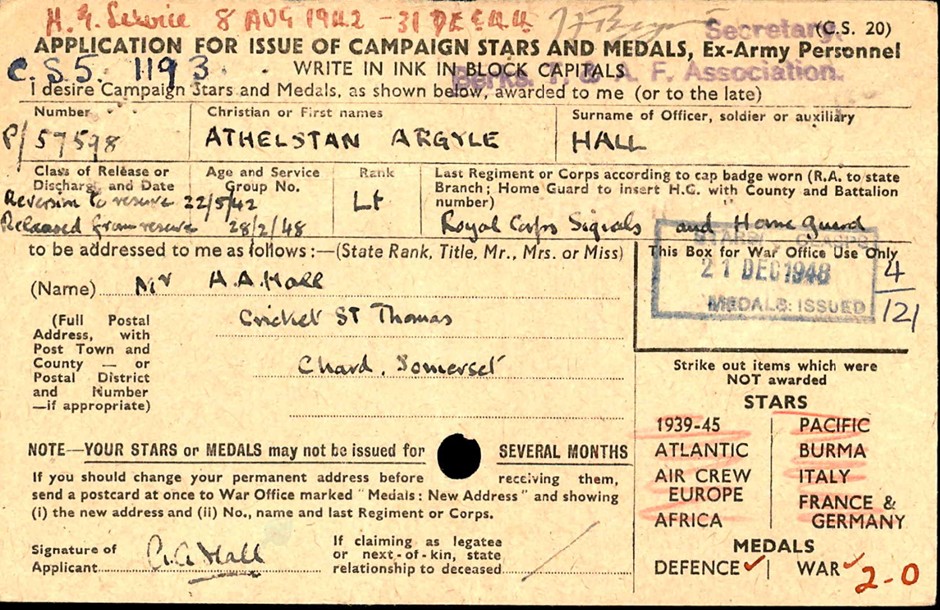 H.G. Service 8 AUG 1942 - 31 DEC 44
Secretary,
(C.S. 20)
APPLICATION FOR ISSUE OF CAMPAIGN STARS AND MEDALS, Ex-Army Personnel
C.S.5. 1193.
WRITE IN INK IN BLOCK CAPITALS
Berks. T. & A. F. Association.
I desire Campaign Stars and Medals, as shown below, awarded to me (or to the late)
Number
Christian or First names
Surname of Officer, soldier or auxiliary
P/57598
ATHELSTAN ARGYLE
HALL
Class of Release or Discharge and Date
Age and Service Group No.
Rank
Last Regiment or Corps according to cap badge worn (R.A. to state
Branch; Home Guard to insert H.G. with County and Battalion
number)
Reversion to reserve 22/5/42
Released from reserve 28/2/48
Lt
Royal Corps Signals and Home Guard
to be addressed to me as follows:—(State Rank, Title, Mr., Mrs. or Miss)
This Box for War Office Use Only
21 DEC 1948
MEDALS: ISSUED
4/121
(Name) Mr A.A. Hall
(Full Postal
Address, with
Post Town and
County — or
Postal District
and Number
—if appropriate)
Cricket ST Thomas
Chard, Somerset
Strike out items which were
NOT awarded
STARS
1939-45
PACIFIC
ATLANTIC
BURMA
AIR CREW
EUROPE
ITALY
AFRICA
FRANCE &
GERMANY
MEDALS
DEFENCE
WAR
2-0
NOTE—YOUR STARS or MEDALS may not be issued for SEVERAL MONTHS
If you should change your permanent address before receiving them,
send a postcard at once to War Office marked "Medals: New Address" and showing
(i) the new address and (ii) No., name and last Regiment or Corps.
Signature of
Applicant
A.A. Hall
If claiming as legatee
or next-of-kin, state
relationship to deceased